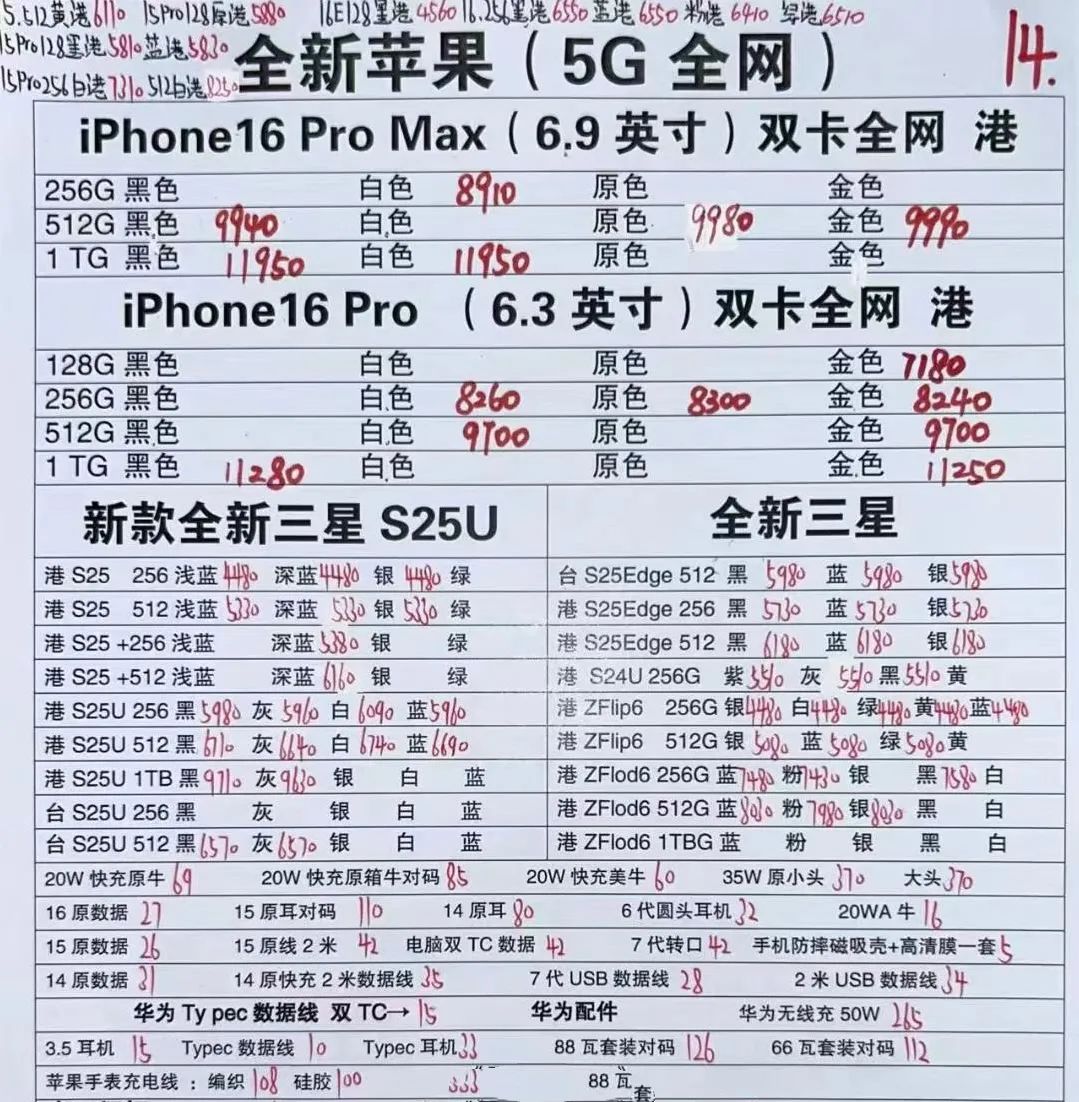 5.512黄港6110 15Pro128原港5880 16E128黑港4560 16.256黑港6550 蓝港6550 粉港6410 绿港6510
15Pro128黑港5810 蓝港5830
15Pro256白港7310 512白港8250
全新苹果(5G 全网) 14.
iPhone16 Pro Max(6.9 英寸)双卡全网 港
256G 黑色 白色 8910 原色 金色
512G 黑色 9940 白色 原色 9980 金色 9990
1 TG 黑色 11950 白色 11950 原色 金色
iPhone16 Pro (6.3 英寸)双卡全网 港
128G 黑色 白色 原色 金色 7180
256G 黑色 白色 8260 原色 8300 金色 8240
512G 黑色 白色 9700 原色 金色 9700
1 TG 黑色 11280 白色 原色 金色 11250
新款全新三星 S25U 全新三星
港 S25 256 浅蓝 4480 深蓝 4480 银 4480 绿 台 S25Edge 512 黑 5980 蓝 5980 银 5980
港 S25 512 浅蓝 5330 深蓝 5330 银 5330 绿 港 S25Edge 256 黑 5730 蓝 5730 银 5730
港 S25 +256 浅蓝 深蓝 5380 银 绿 港 S25Edge 512 黑 6180 蓝 6180 银 6180
港 S25 +512 浅蓝 深蓝 6160 银 绿 港 S24U 256G 紫 5510 灰 5510 黑 5510 黄
港 S25U 256 黑 5980 灰 5960 白 6090 蓝 5960 港 ZFlip6 256G 银 4480 白 4480 绿 4480 黄 4480 蓝 4480
港 S25U 512 黑 6710 灰 6640 白 6740 蓝 6690 港 ZFlip6 512G 银 5080 蓝 5080 绿 5080 黄
港 S25U 1TB 黑 9710 灰 9630 银 白 蓝 港 ZFlod6 256G 蓝 7480 粉 7430 银 黑 7580 白
台 S25U 256 黑 灰 银 白 蓝 港 ZFlod6 512G 蓝 8030 粉 7980 银 8030 黑 白
台 S25U 512 黑 6570 灰 6570 银 白 蓝 港 ZFlod6 1TBG 蓝 粉 银 黑 白
20W 快充原牛 69 20W 快充原箱牛对码 85 20W 快充美牛 60 35W 原小头 370 大头 370
16 原数据 27 15 原耳对码 110 14 原耳 80 6 代圆头耳机 32 20WA 牛 16
15 原数据 26 15 原线 2 米 42 电脑双 TC 数据 42 7 代转口 42 手机防摔磁吸壳+高清膜一套 5
14 原数据 31 14 原快充 2 米数据线 35 7 代 USB 数据线 28 2 米 USB 数据线 34
华为 Ty pec 数据线 双 TC→ 15 华为配件 华为无线充 50W 265
3.5 耳机 15 Typec 数据线 10 Typec 耳机 33 88 瓦套装对码 126 66 瓦套装对码 112
苹果手表充电线 : 编织 108 硅胶 100 88 瓦套